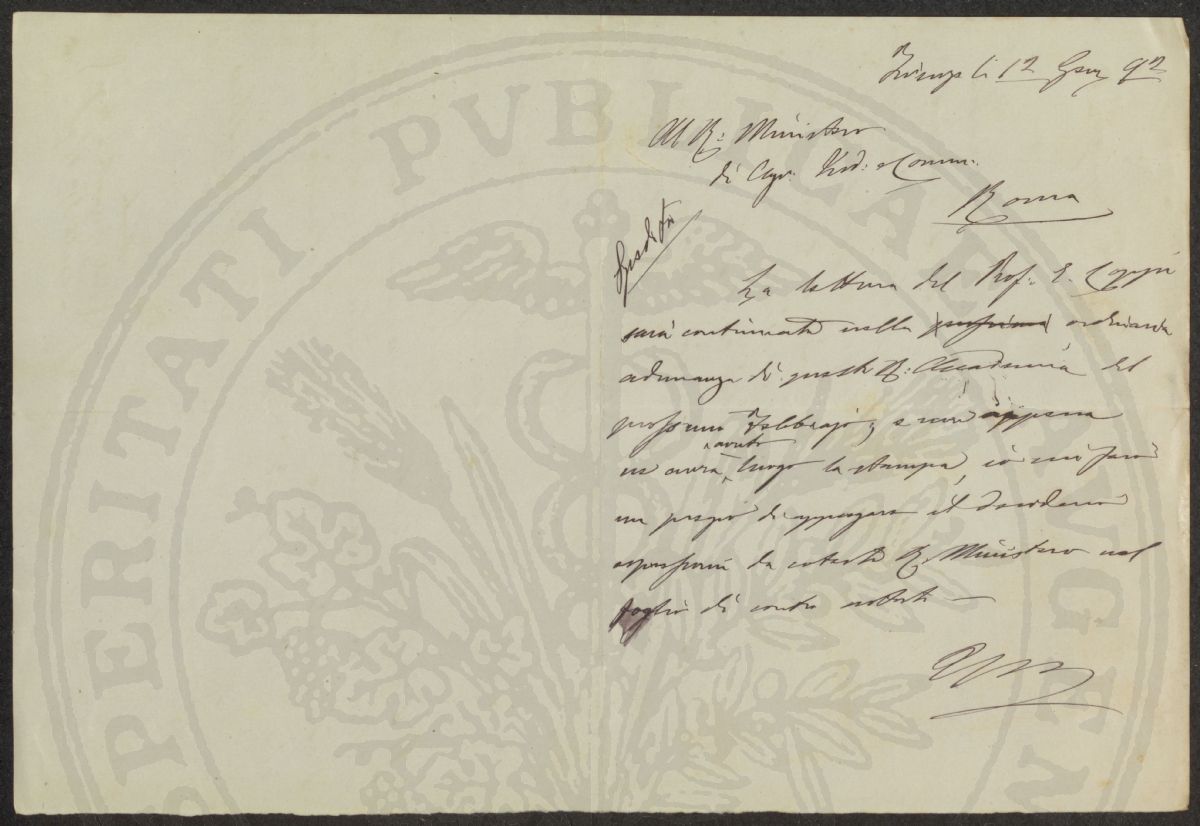 PROSPERITATI PVBLICAE AVGEN
Firenze li 12 Genn 92
Al R. Ministero
di Agr. Ind. e Comm.
Roma
Spedita
La lettura del Prof. E. Coppi
sarà continuata nella prossima ordinaria
adunanza di questa R. Accademia del
prossimo Febbrajo, e non appena
ne avrà avuto luogo la stampa, io mi farò
un pregio di appagare il desiderio
espressomi da cotesto R. Ministero nel
foglio di contro notato